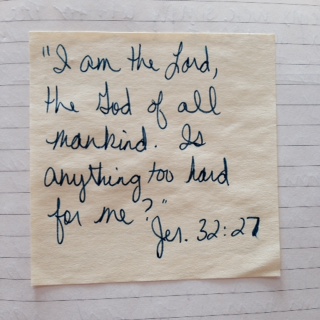 "I am the Lord,
the God of all
mankind. Is
anything too hard
for me?"
Jer. 32:27